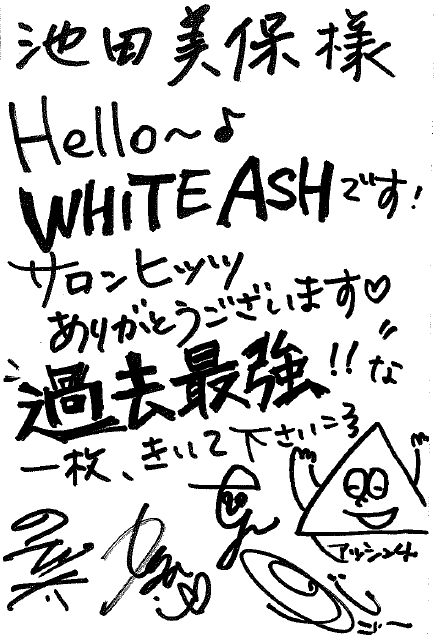 池田美保様
Hello〜♪
WHITE ASHです!
サロンヒッツ
ありがとうございます♡
過去最強!!な
一枚、きいて下さい
アッシュ